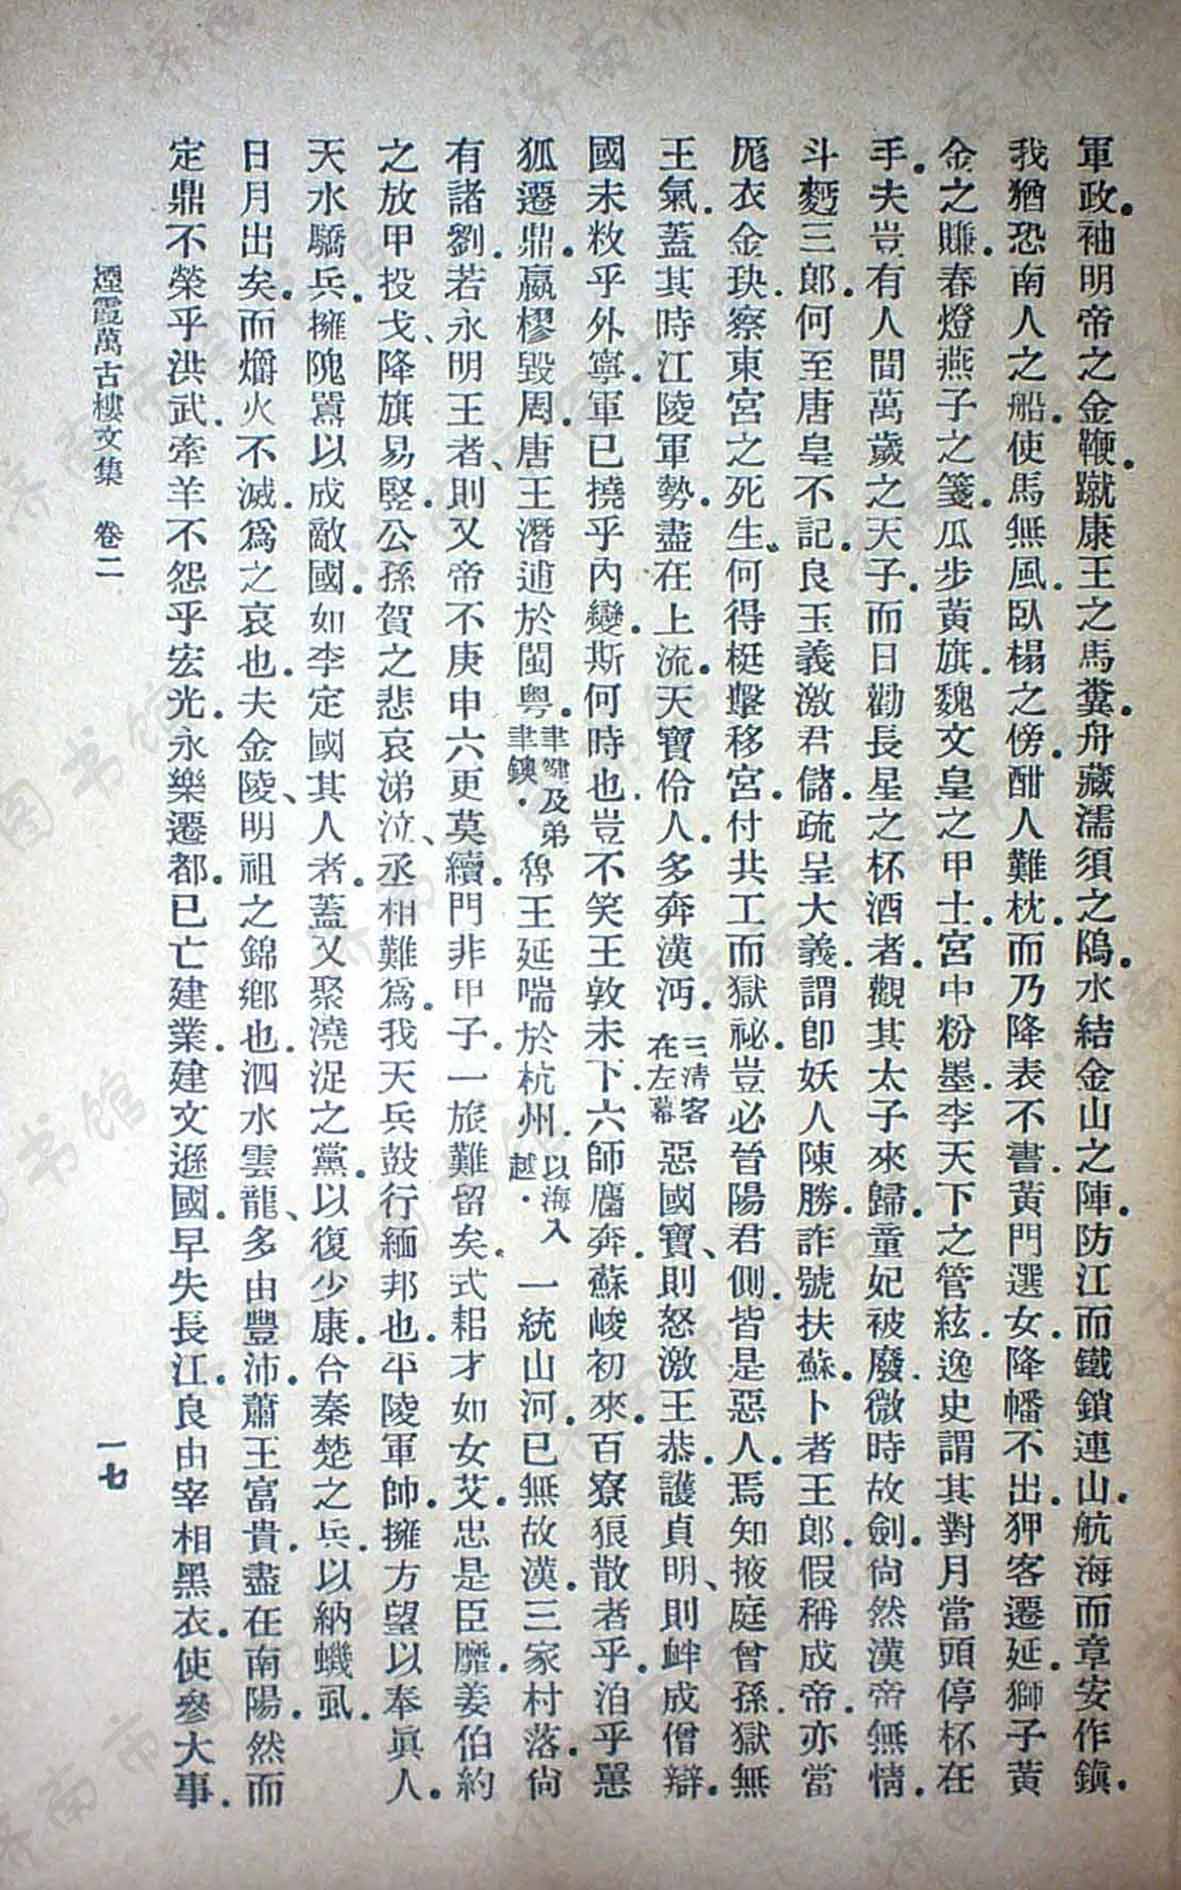 軍政。袖明帝之金鞭。蹴康王之馬糞。舟藏濡須之塢。水結金山之陣。防江而鐵鎖連山。航海而章安作鎮。
我猶恐南人之船。使馬無風。臥榻之傍。酣人難枕。而乃降表不書。黃門選女。降幡不出。狎客遷延。獅子黃
金之賺。春燈燕子之箋。瓜步黃旗。魏文皇之甲士。宮中粉墨。李天下之管絃。逸史謂其對月當頭。停杯在
手。夫豈有人間萬歲之天子。而日勸長星之杯酒者。觀其太子來歸。童妃被廢。微時故劍。尙然漢帝無情。
斗麪三郎。何至唐皇不記。良玉義激君儲。疏呈大義。謂卽妖人陳勝。詐號扶蘇。卜者王郎。假稱成帝。亦當
厖衣金玦。察東宮之死生。何得梃擊移宮。付共工而獄祕。豈必晉陽君側。皆是惡人。焉知掖庭曾孫。獄無
王氣。蓋其時江陵軍勢。盡在上流。天寶伶人。多奔漢沔。三清客在左幕惡國寶、則怒激王恭。護貞明、則衅成僧辯。
國未敉乎外寧。軍已撓乎內變。斯何時也。豈不笑王敦未下。六師麕奔。蘇峻初來。百寮狼散者乎。洎乎瞾
狐遷鼎。嬴樛毀周。唐王潛逋於閩粵。聿鍵及弟聿鐭。魯王延喘於杭州。以海入越。一統山河。已無故漢。三家村落。尙
有諸劉。若永明王者、則又帝不庚申。六更莫續。門非甲子。一旅難留矣。式耜才如女艾。忠是臣靡。姜伯約
之放甲投戈、降旗易豎。公孫賀之悲哀涕泣、丞相難爲。我天兵鼓行緬邦也。平陵軍帥。擁方望以奉眞人。
天水驕兵。擁隗囂以成敵國。如李定國其人者。蓋又聚澆浞之黨。以復少康。合秦楚之兵。以納蟣虱。
日月出矣。而爝火不滅。爲之哀也。夫金陵、明祖之錦鄕也。泗水雲龍、多由豐沛。蕭王富貴。盡在南陽。然而
定鼎不榮乎洪武。牽羊不怨乎宏光。永樂遷都。已亡建業。建文遜國。早失長江。良由宰相黑衣。使參大事。
煙霞萬古樓文集　卷二　一七